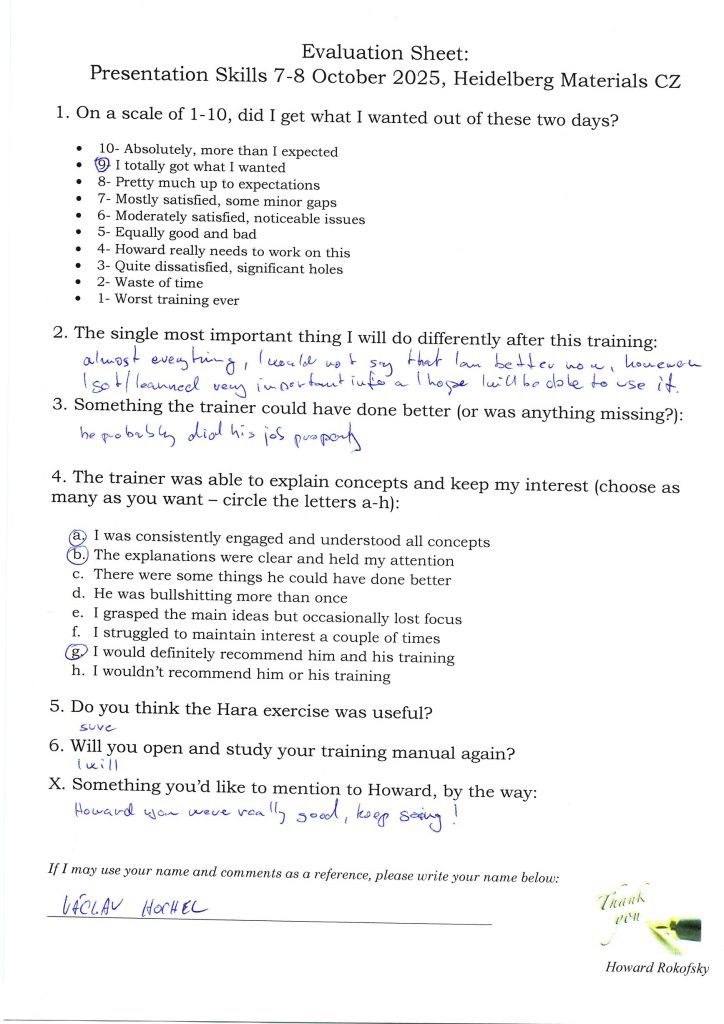 Evaluation Sheet:
Presentation Skills 7-8 October 2025, Heidelberg Materials CZ
1. On a scale of 1-10, did I get what I wanted out of these two days?
• 10- Absolutely, more than I expected
• 9- I totally got what I wanted
• 8- Pretty much up to expectations
• 7- Mostly satisfied, some minor gaps
• 6- Moderately satisfied, noticeable issues
• 5- Equally good and bad
• 4- Howard really needs to work on this
• 3- Quite dissatisfied, significant holes
• 2- Waste of time
• 1- Worst training ever
2. The single most important thing I will do differently after this training:
almost everything, I would not say that I am better now, however
I got/learned very important info a I hope I will be able to use it.
3. Something the trainer could have done better (or was anything missing?):
he probably did his job properly
4. The trainer was able to explain concepts and keep my interest (choose as
many as you want – circle the letters a-h):
a. I was consistently engaged and understood all concepts
b. The explanations were clear and held my attention
c. There were some things he could have done better
d. He was bullshitting more than once
e. I grasped the main ideas but occasionally lost focus
f. I struggled to maintain interest a couple of times
g. I would definitely recommend him and his training
h. I wouldn't recommend him or his training
5. Do you think the Hara exercise was useful?
sure
6. Will you open and study your training manual again?
I will
X. Something you'd like to mention to Howard, by the way:
Howard you were really good, keep going!
If I may use your name and comments as a reference, please write your name below:
VÁCLAV HOCHEL
Thank
you
Howard Rokofsky